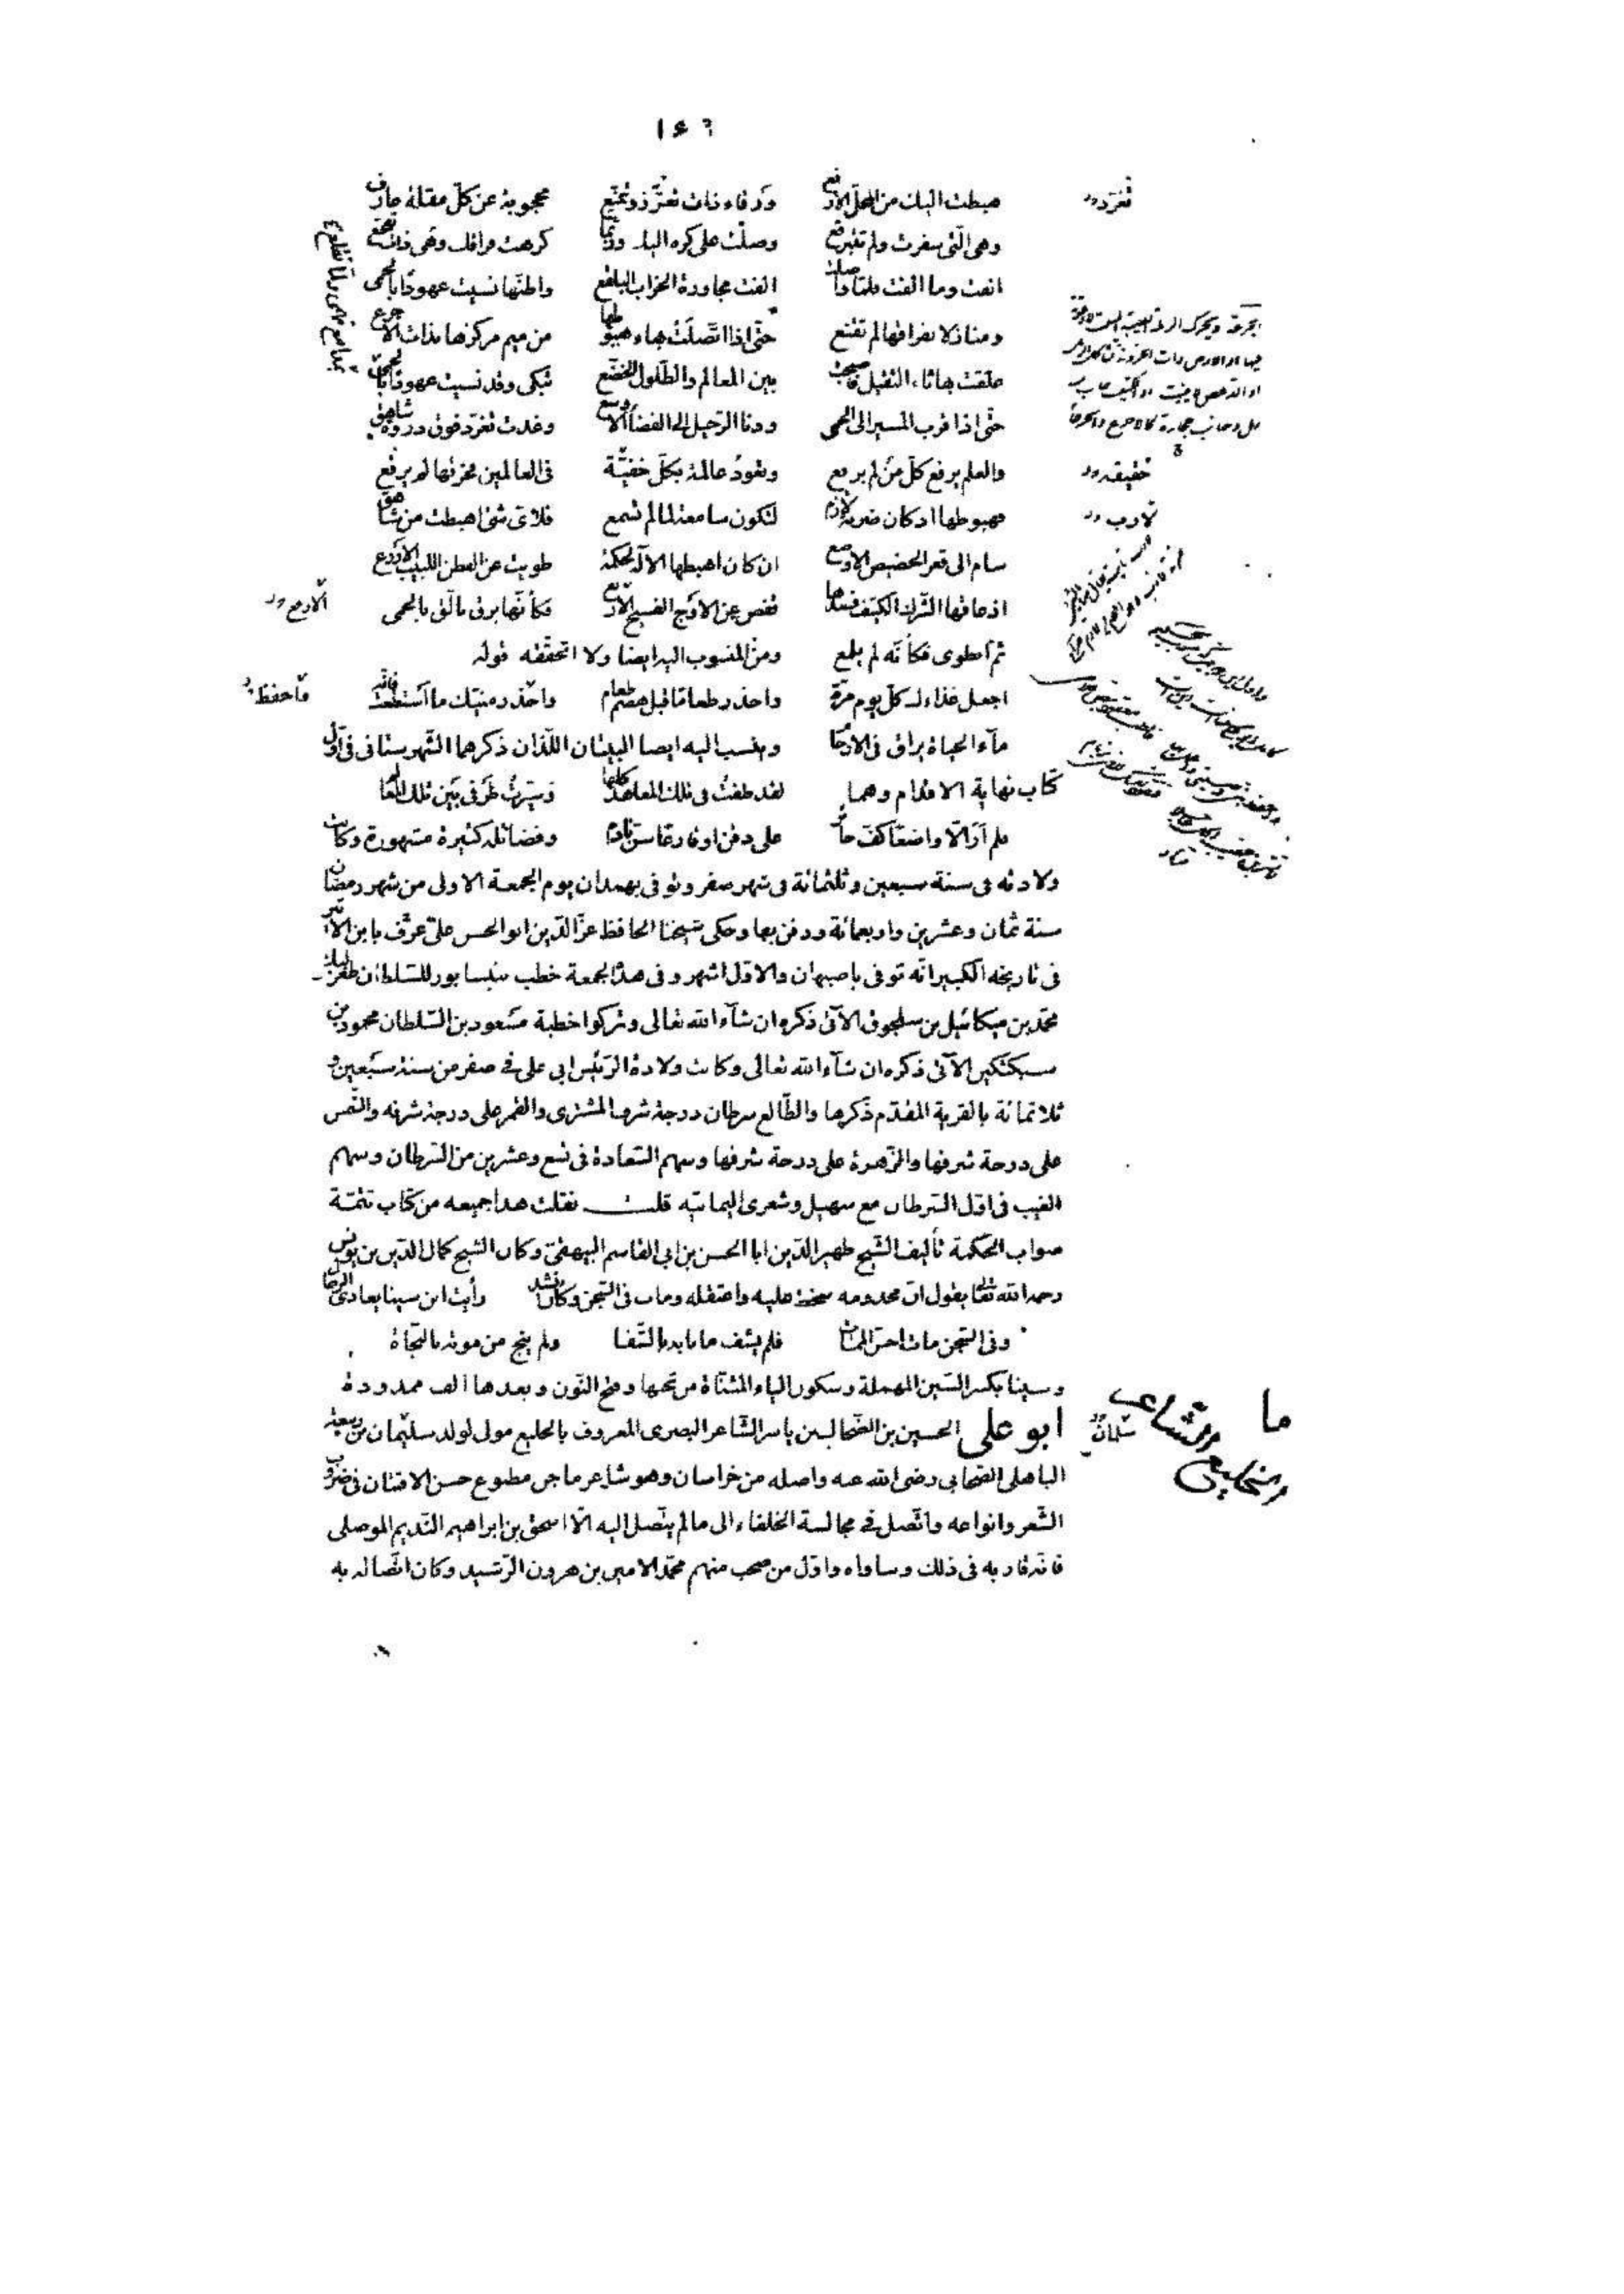 ١٤٦
هبطت اليك من المحل الارفع ورقاء ذات تعزّز وتمنّع محجوبة عن كلّ مقلة عارف
وهى الّتى سفرت ولم تتبرقع وصلت على كره اليك وربّما كرهت فراقك وهى ذات تفجّع
انفت وما الفت فلمّا واصلت الفت مجاورة الخراب البلقع واظنّها نسيت عهودًا بالحمى
ومنازلا بفراقها لم تقنع حتّى اذا اتّصلت بهاء هبوطها من ميم مركزها بذات الاجرع
علقت بها ثاء الثقيل فاصبحت بين المعالم والطّلول الخضّع تبكى وقد نسيت عهودًا بالحمى
حتّى اذا قرب المسير الى الحمى ودنا الرّحيل الى الفضاء الاوسع وغدت تغرّد فوق ذروة شاهق
والعلم يرفع كلّ من لم يرفع وتعودُ عالمة بكلّ خفيّة فى العالمين فخرقها لم يرقع
فهبوطها اذ كان ضربة لازم لتكون سامعة لما لم تسمع فلاىّ شئ اهبطت من شاهق
سام الى قعر الحضيض الاوضع ان كان اهبطها الاله لحكمة طويت عن الفطن اللبيب الاروع
اذ عاقها الشّرك الكثيف فصدّها قفص عن الاوج الفسيح الارفع فكأنّها برق تألّق بالحمى
ثمّ انطوى فكأنّه لم يلمع ومن المنسوب اليه ايضا ولا اتحققه قوله
اجعل غذاءك كلّ يوم مرّة واحذر طعامًا قبل هضم طعام واحذر منيّك ما استطعت فانّه
مآء الحياة يراق فى الارحام وينسب اليه ايضا البيتان اللّذان ذكرهما الشّهرستانى فى اوّل
كتاب نهاية الاقدام وهما لقد طفت فى تلك المعاهد كلها وسيّرت طرفى بين تلك المعالم
فلم ار الّا واضعًا كفّ حائر على ذقن او قارعًا سنّ نادم وفضائله كثيرة مشهورة وكانت
ولادته فى سنة سبعين وثلثمائة فى شهر صفر وتوفى بهمدان يوم الجمعة الاولى من شهر رمضان
سنة ثمان وعشرين واربعمائة ودفن بها وحكى شيخنا الحافظ عزّ الدّين ابو الحسن علىّ عرّف بابن الاثير
فى تاريخه الكبير انّه توفى باصبهان والاوّل اشهر وفى هذه الجمعة خطب بنيسابور للسّلطان طغرلبك
محمّد بن ميكائيل بن سلجوق الآتى ذكره ان شآء الله تعالى وتركوا خطبة مسعود بن السّلطان محمود بن
سبكتكين الآتى ذكره ان شآء الله تعالى وكانت ولادة الرّئيس ابى على فى صفر من سنة سبعين و
ثلاثمائة بالقرية المقدّم ذكرها والطّالع سرطان درجة شرف المشترى والقمر على درجة شرفه والشّمس
على درجة شرفها والزّهرة على درجة شرفها وسهم السّعادة فى تسع وعشرين من السّرطان وسهم
الغيب فى اوّل السّرطان مع سهيل وشعرى اليمانيّة قلت نقلت هذا جميعه من كتاب تتمّة
صواب الحكمة تأليف الشّيخ ظهير الدّين ابا الحسن بن ابى القاسم البيهقىّ وكان الشيخ كمال الدّين بن يونس
رحمه الله تعالى يقول انّ مخدومه سخط عليه واعتقله ومات فى السّجن وكان ينشد رأيت ابن سينا يعادى الرجال
وفى السّجن مات اخسّ الممات فلم يشف ما نابه بالشّفا ولم ينج من موته بالنّجاة
وسينا بكسر السّين المهملة وسكون الياء المثنّاة من تحتها وفتح النّون وبعدها الف ممدودة
ابو على الحسين بن الضّحاك بن ياسر الشّاعر البصرى المعروف بالخليع مولى لولد سليمان بن ربيعة
الباهلى الصّحابى رضى الله عنه واصله من خراسان وهو شاعر ماجن مطبوع حسن الافتنان فى ضروب
الشّعر وانواعه واتّصل فى مجالسة الخلفاء الى ما لم يتّصل اليه الّا اسحق بن ابراهيم النّديم الموصلى
فانّه قاربه فى ذلك وساواه واوّل من صحب منهم محمّد الامين بن هرون الرّشيد وكان اتّصاله به
تغرد
خفيّة
لازب
الاروع
فاحفظ
سلمان